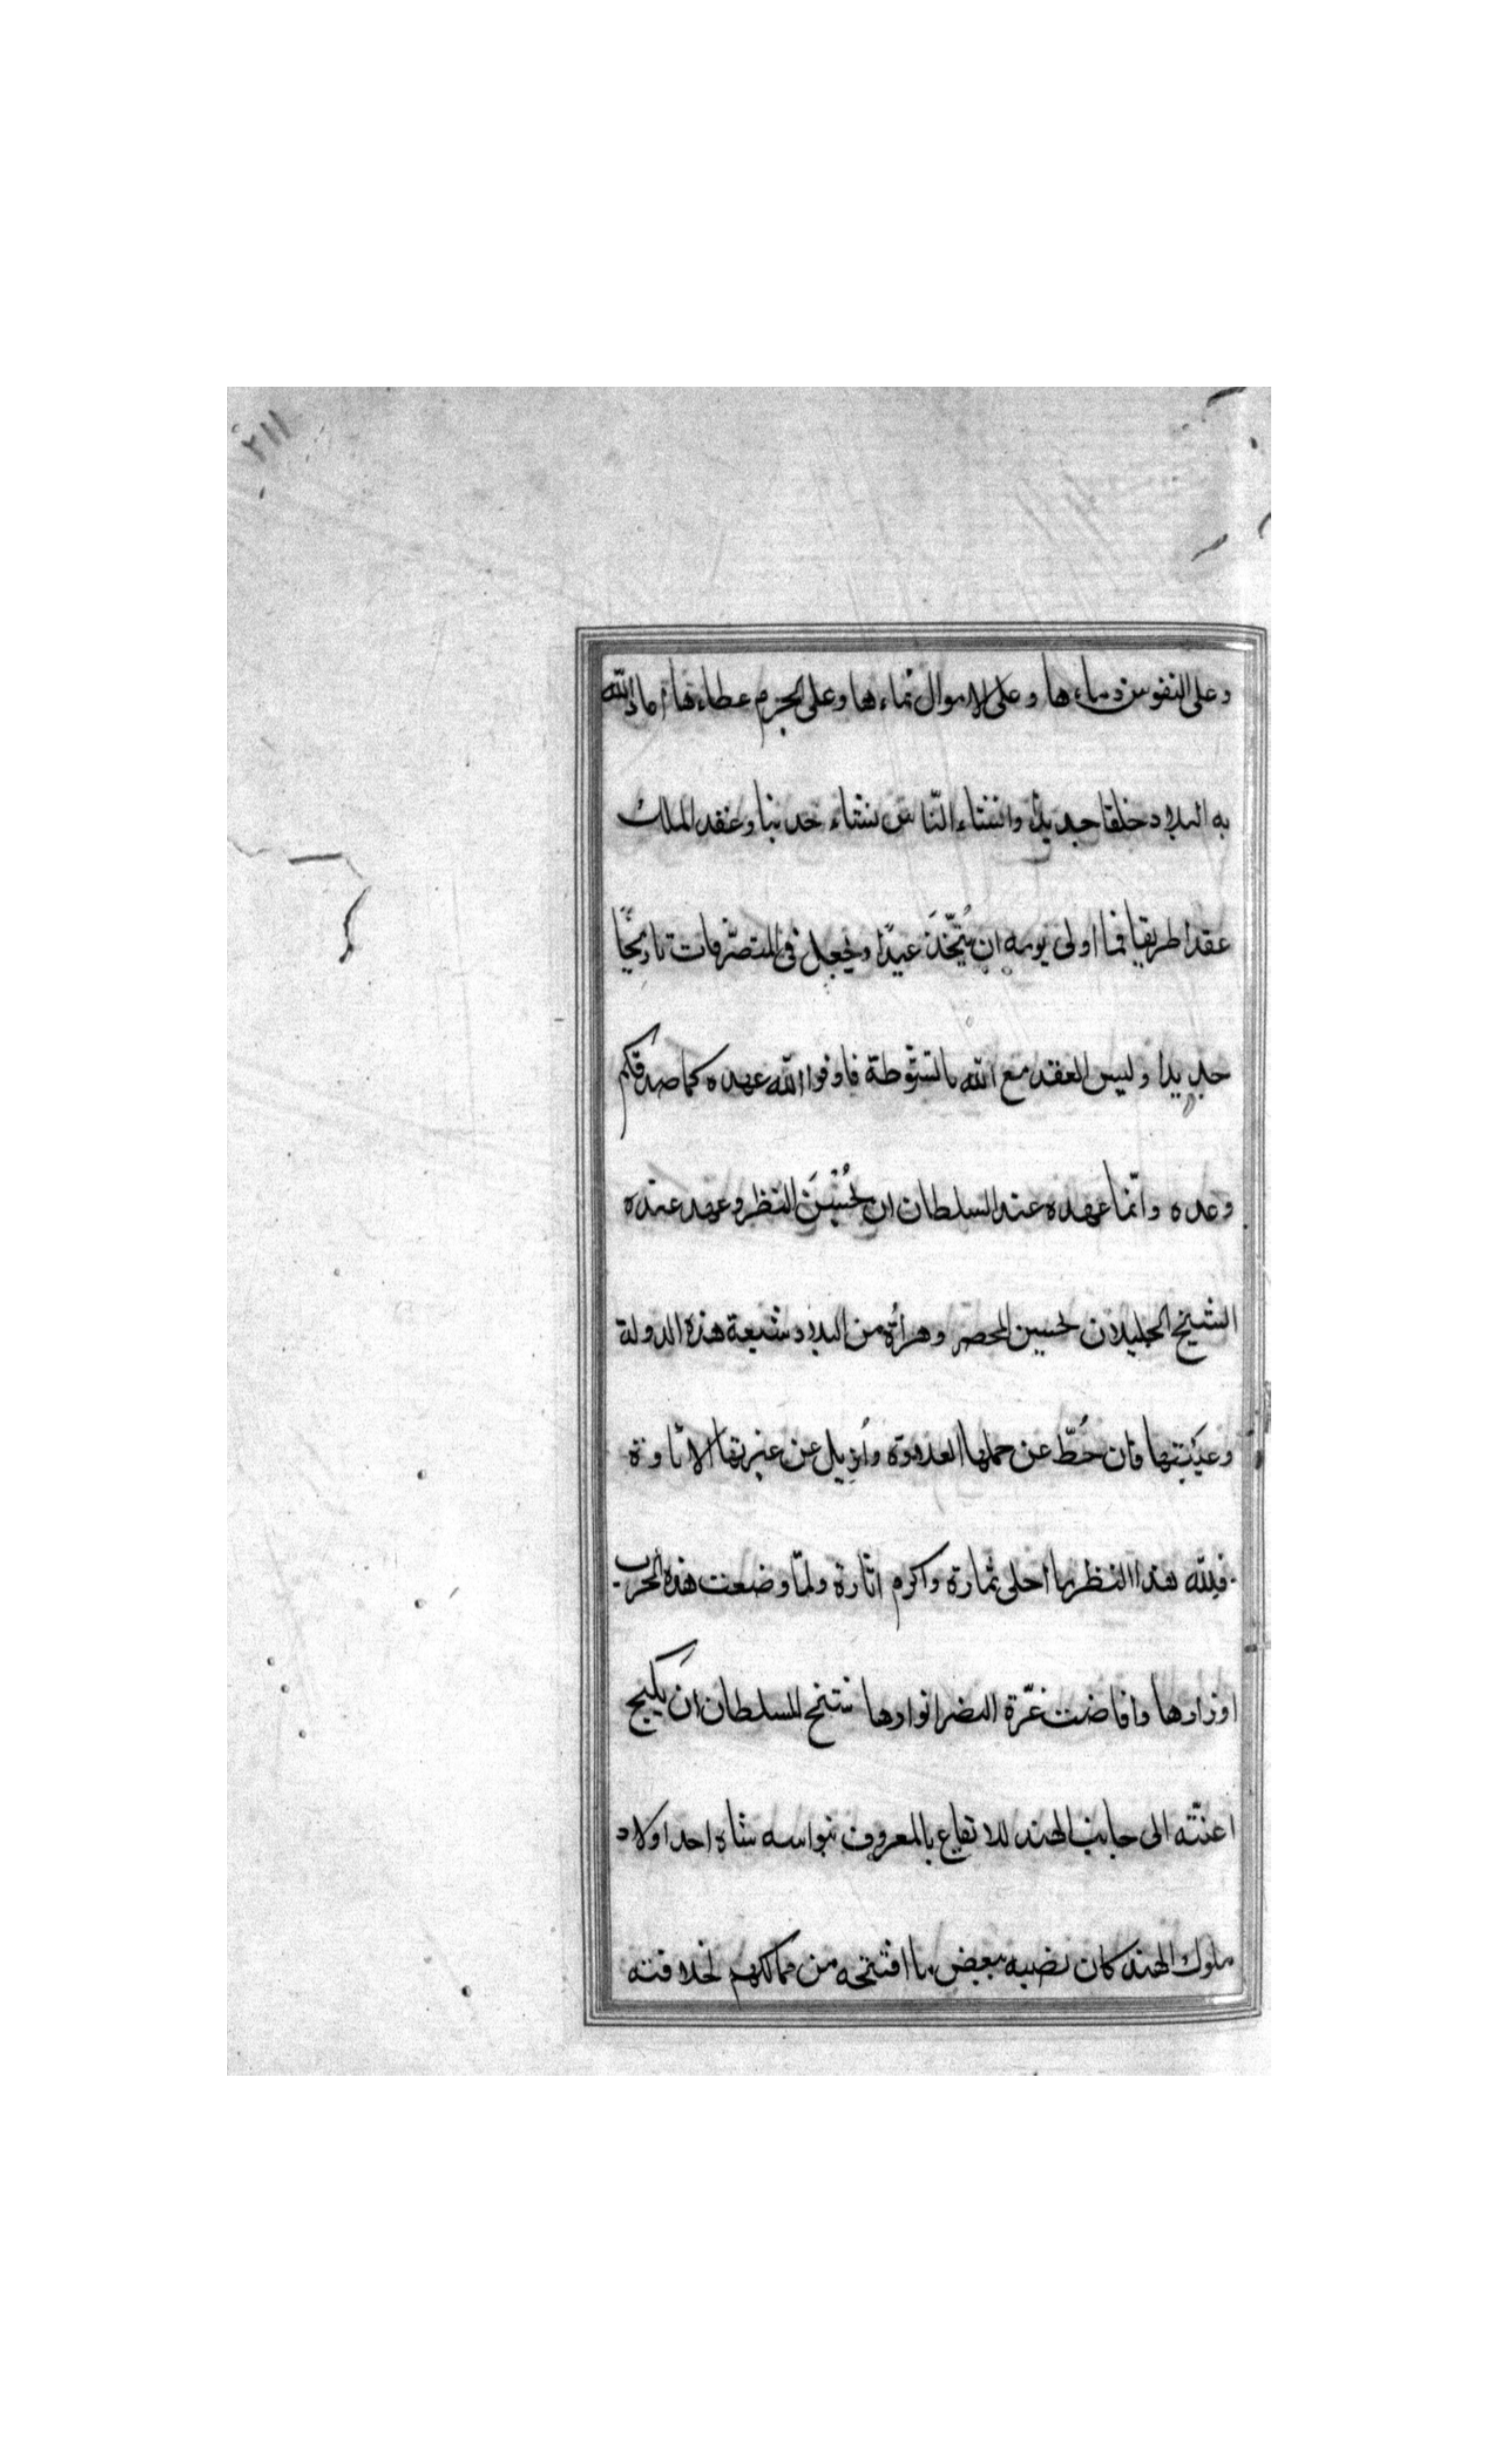 ٢١١
وعلى النفوس دماءها وعلى الاموال نماءها وعلى الحرم عطاءها اما الله
به البلاد خلقا جديدا وانشاء الناس نشاء حديثا وعقد الملك
عقدا طريفا فما اولى يومه ان يُتَّخذَ عيدًا ويجعل فى المتصرفات تاريخًا
جديدا وليس العقد مع الله بالتشوطة فاوفوا الله عهده كما صدقكم
وعده وانما عهده عند السلطان ان يُحْسِنَ النظر وعهد عنده
الشيخ الجليل ان يحسن المحضر وهراة من البلاد شيعة هذه الدولة
وعيبتها فان حُطّ عن حملها العلاوة وأزيل عن عبرتها الاتاوة
فلله هذا النظر ما احلى ثماره واكرم اثاره ولمّا وضعت هذه الحرب
اوزارها وافاضت غرّة النصر انوارها سنح للسلطان ان يكبح
اعنّته الى جانب الهند للايقاع بالمعروف بنواسه شاه احد اولاد
ملوك الهند كان نصبه ببعض ما افتتحه من ممالكهم لخلافته